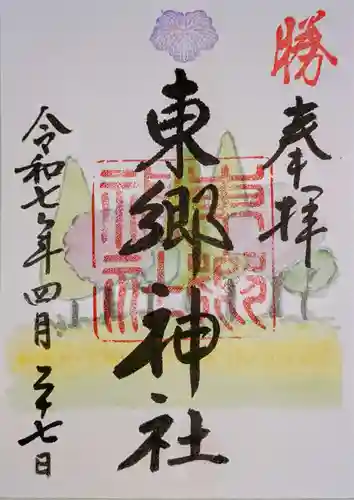 勝
奉拝
東郷神社
東郷神社
令和七年四月二十七日